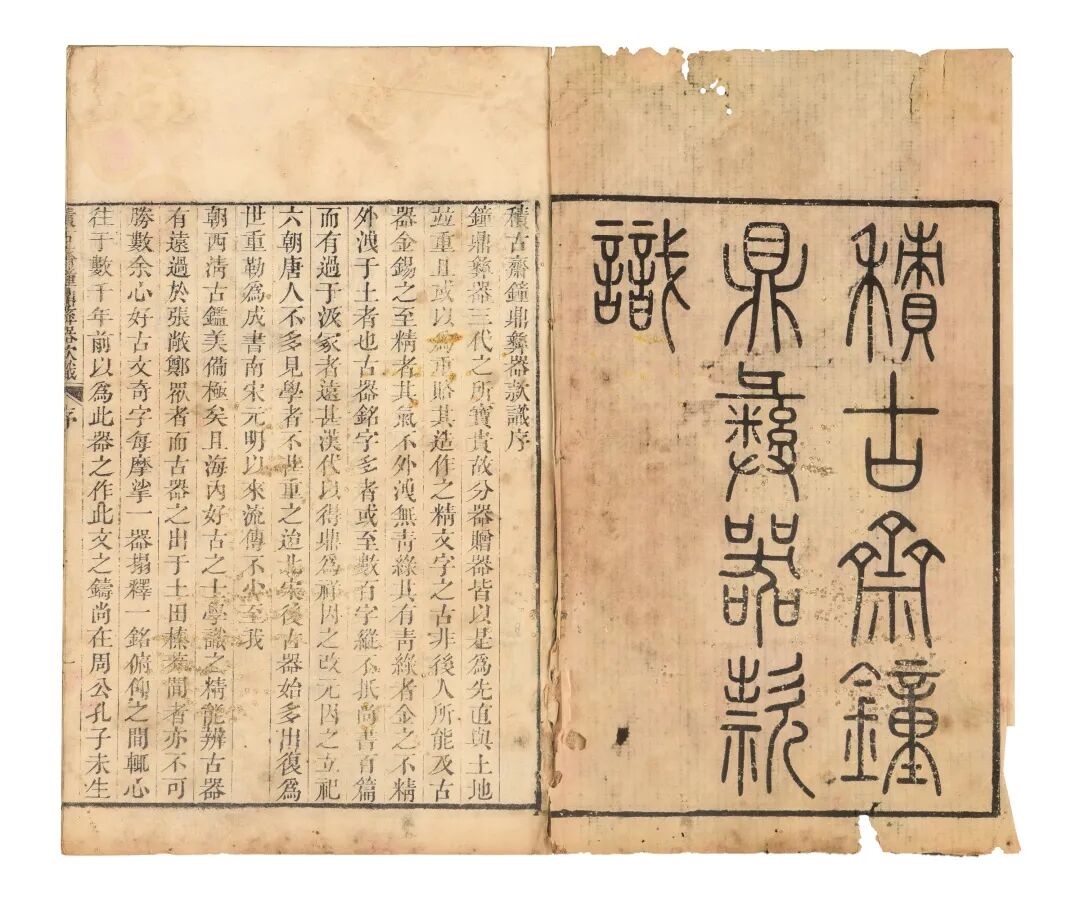 積古齋鐘
鼎彝器款
識
積古齋鐘鼎彝器款識序
鐘鼎彝器三代之所寶貴故分器贈器皆以是為先直與土地
竝重且或以為重賂其造作之精文字之古非後人所能及古
器金錫之至精者其氣不外洩無青綠其有青綠者金之不精
外洩于土者也古器銘字多者或至數百字縱不抵尚書百篇
而有過于汲冢者遠甚漢代以得鼎為祥因之改元因之立祀
六朝唐人不多見學者不甚重之迨北宋後古器始多出復為
世重勒為成書南宋元明以來流傳不少至我
朝西清古鑑美備極矣且海內好古之士學識之精能辨古器
有遠過於張敞鄭眾者而古器之出于土田榛莽間者亦不可
勝數余心好古文奇字每摩挲一器搨釋一銘俯仰之間輒心
往于數千年前以為此器之作此文之鑄尚在周公孔子未生
積古齋鐘鼎彝器款識 序